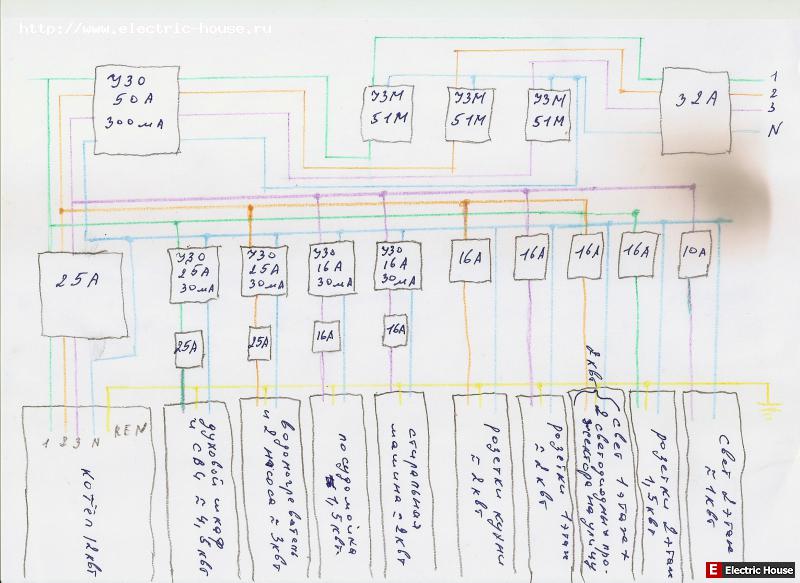 http://www.electric-house.ru
УЗО
50А
300мА
УЗМ
51М
УЗМ
51М
УЗМ
51М
32А
1
2
3
N
25А
УЗО
25А
30мА
УЗО
25А
30мА
УЗО
16А
30мА
УЗО
16А
30мА
16А
16А
16А
16А
10А
25А
25А
16А
16А
1 2 3 N REN
котёл 12квт
духовой шкаф
и СВЧ ≈ 4,5квт
водонагреватель
и 2 насоса ≈ 3квт
посудомойка
≈ 1,5квт
стиральная
машина ≈ 2квт
розетки кухни
≈ 2квт
розетки 1 этаж
≈ 2квт
2квт
свет 1 этажа +
2 светодиодных про-
жектора на улицу
розетки 2 этаж
1,5квт
свет 2 этаж
≈ 1квт
E Electric House